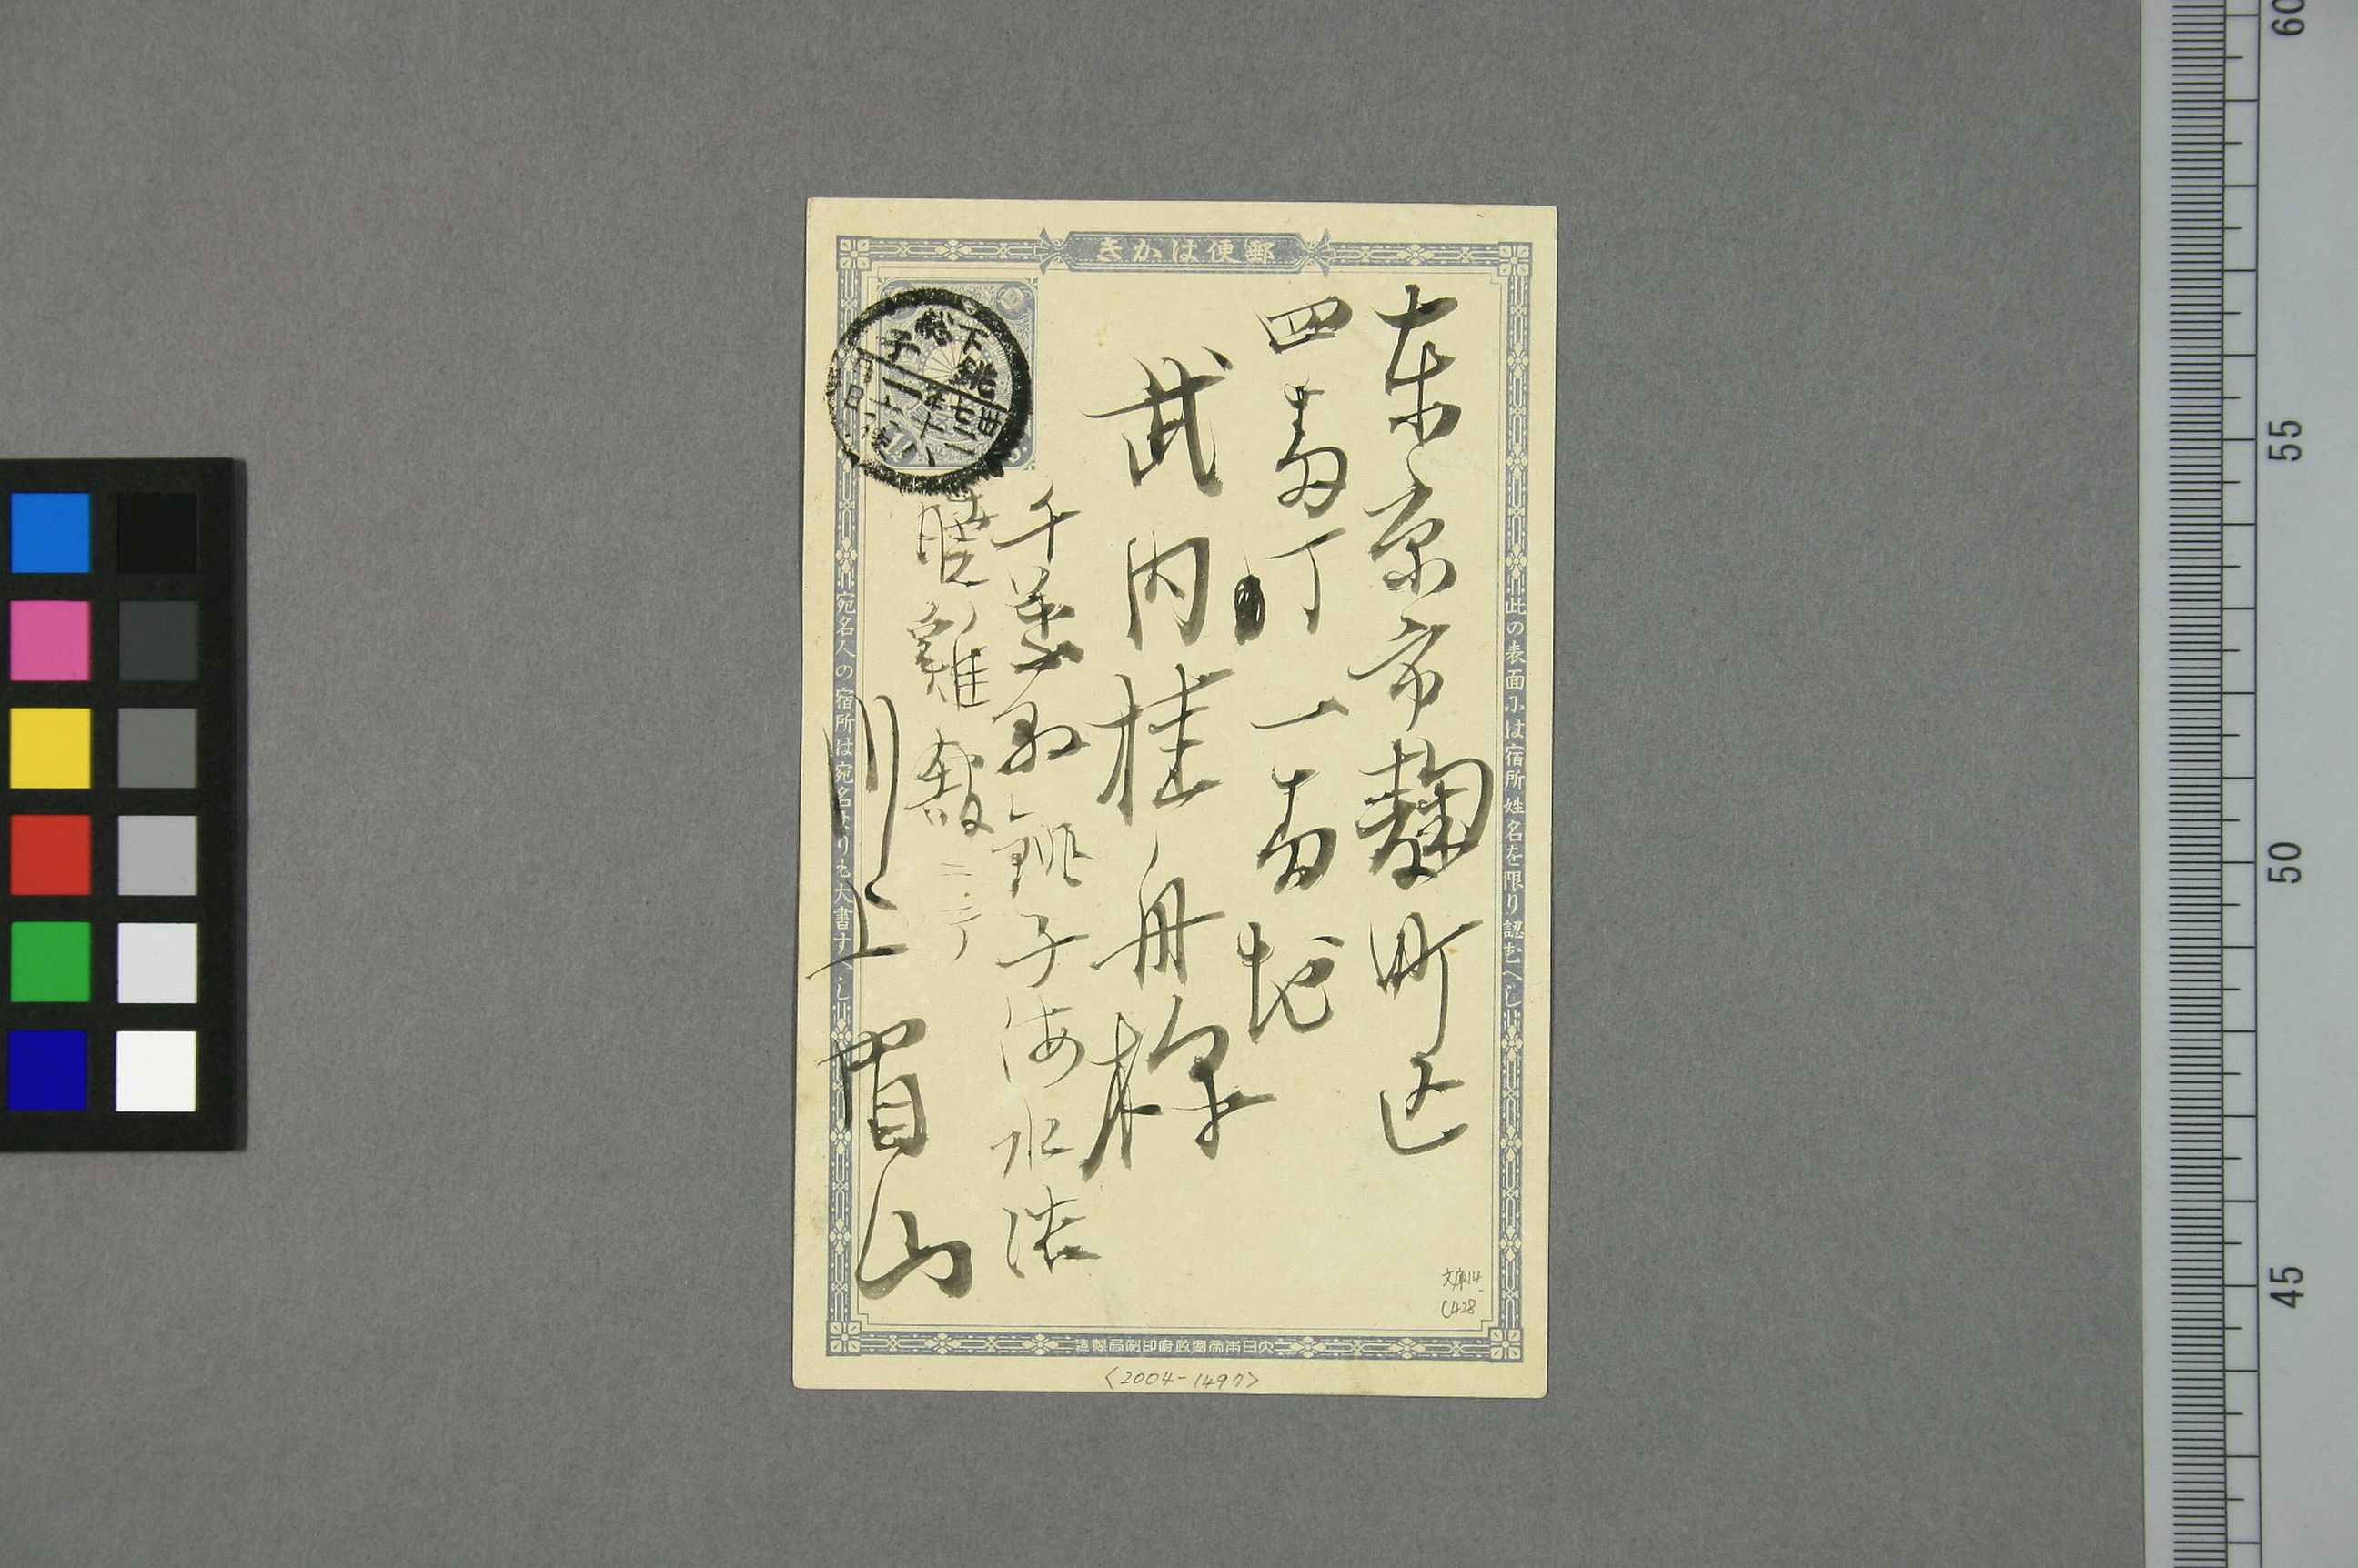 郵便はかき
此の表面には宿所姓名を限り認むへし
東京市麹町区
四番丁一番地
武内桂舟様
千葉県銚子海水浴
暁雞館ニテ
川上眉山
宛名人の宿所は宛名よりも大書すへし
下総
銚子
大日本帝国政府印刷局製造
文庫14
C428
<2004-1497>
60
55
50
45